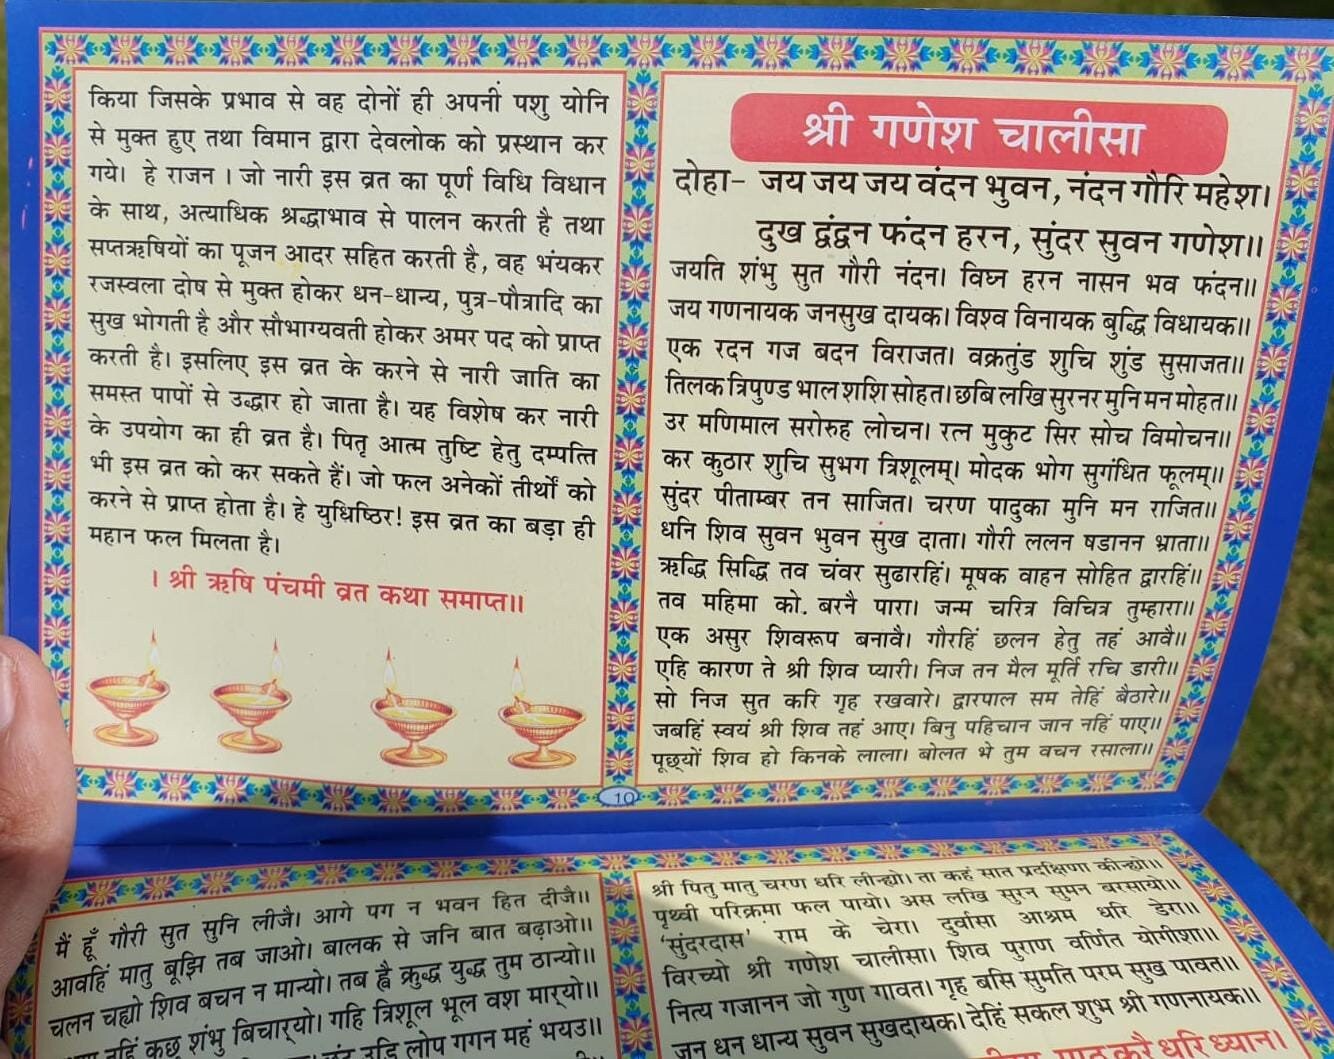 किया जिसके प्रभाव से वह दोनों ही अपनी पशु योनि
से मुक्त हुए तथा विमान द्वारा देवलोक को प्रस्थान कर
गये। हे राजन । जो नारी इस व्रत का पूर्ण विधि विधान
के साथ, अत्याधिक श्रद्धाभाव से पालन करती है तथा
सप्तऋषियों का पूजन आदर सहित करती है, वह भंयकर
रजस्वला दोष से मुक्त होकर धन-धान्य, पुत्र-पौत्रादि का
सुख भोगती है और सौभाग्यवती होकर अमर पद को प्राप्त
करती है। इसलिए इस व्रत के करने से नारी जाति का
समस्त पापों से उद्धार हो जाता है। यह विशेष कर नारी
के उपयोग का ही व्रत है। पितृ आत्म तुष्टि हेतु दम्पत्ति
भी इस व्रत को कर सकते हैं। जो फल अनेकों तीर्थों को
करने से प्राप्त होता है। हे युधिष्ठिर! इस व्रत का बड़ा ही
महान फल मिलता है।
। श्री ऋषि पंचमी व्रत कथा समाप्त॥
श्री गणेश चालीसा
दोहा- जय जय जय वंदन भुवन, नंदन गौरि महेश।
दुख द्वंद्वन फंदन हरन, सुंदर सुवन गणेश॥
जयति शंभु सुत गौरी नंदन। विघ्न हरन नासन भव फंदन॥
जय गणनायक जनसुख दायक। विश्व विनायक बुद्धि विधायक॥
एक रदन गज बदन विराजत। वक्रतुंड शुचि शुंड सुसाजत॥
तिलक त्रिपुण्ड भाल शशि सोहत। छबि लखि सुरनर मुनि मन मोहत॥
उर मणिमाल सरोरुह लोचन। रत्न मुकुट सिर सोच विमोचन॥
कर कुठार शुचि सुभग त्रिशूलम्। मोदक भोग सुगंधित फूलम्॥
सुंदर पीताम्बर तन साजित। चरण पादुका मुनि मन राजित॥
धनि शिव सुवन भुवन सुख दाता। गौरी ललन षडानन भ्राता॥
ऋद्धि सिद्धि तव चंवर सुढारहिं। मूषक वाहन सोहित द्वारहिं॥
तव महिमा को. बरनै पारा। जन्म चरित्र विचित्र तुम्हारा॥
एक असुर शिवरूप बनावै। गौरहिं छलन हेतु तहं आवै॥
एहि कारण ते श्री शिव प्यारी। निज तन मैल मूर्ति रचि डारी॥
सो निज सुत करि गृह रखवारे। द्वारपाल सम तेहिं बैठारे॥
जबहिं स्वयं श्री शिव तहं आए। बिनु पहिचान जान नहिं पाए॥
पूछ्यों शिव हो किनके लाला। बोलत भे तुम वचन रसाला॥
10
मैं हूँ गौरी सुत सुनि लीजै। आगे पग न भवन हित दीजै॥
आवहिं मातु बूझि तब जाओ। बालक से जनि बात बढ़ाओ॥
चलन चह्यो शिव बचन न मान्यो। तब ह्वै क्रुद्ध युद्ध तुम ठान्यो॥
नहिं कछु शंभु बिचार्‌यो। गहि त्रिशूल भूल वश मार्‌यो॥
उड़ि लोप गगन महं भयउ॥
श्री पितु मातु चरण धरि लीन्ह्यो। ता कहं सात प्रदक्षिणा कीन्ह्यो॥
पृथ्वी परिक्रमा फल पायो। अस लखि सुरन सुमन बरसायो॥
'सुंदरदास' राम के चेरा। दुर्वासा आश्रम धरि डेरा॥
विरच्यो श्री गणेश चालीसा। शिव पुराण वर्णित योगीशा॥
नित्य गजानन जो गुण गावत। गृह बसि सुमति परम सुख पावत॥
जन धन धान्य सुवन सुखदायक। देहिं सकल शुभ श्री गणनायक॥
करै धरि ध्यान।